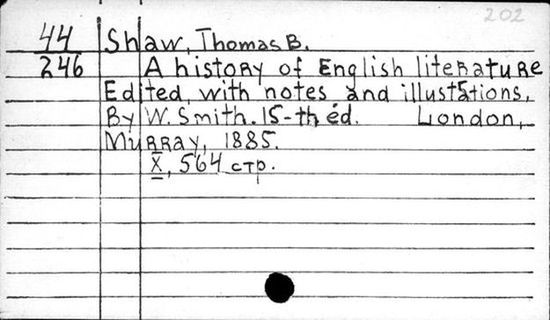 202
44 Shaw, Thomas B.
246 A history of English literature
Edited with notes and illustrations,
By W. Smith. 15-th éd. London,
Murray, 1885.
X, 564 стр.